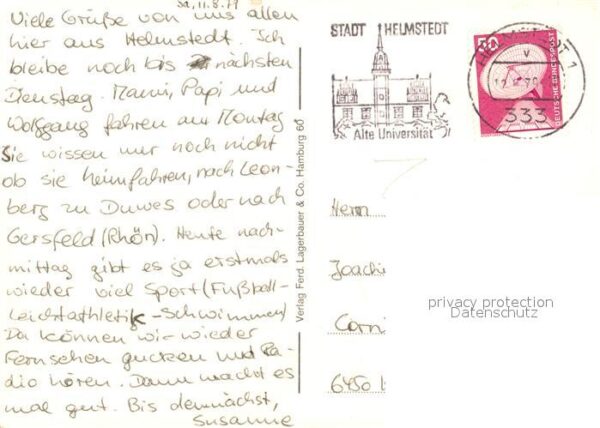 Sa, 11.8.79
Viele Grüße von uns allen
hier aus Helmstedt. Ich
bleibe noch bis nächsten
Dienstag. Mami, Papi und
Wolfgang fahren am Montag
Sie wissen nur noch nicht
ob sie heimfahren, nach Leon-
berg zu Duwes oder nach
Gersfeld (Rhön). Heute nach-
mittag gibt es ja erstmals
wieder viel Sport (Fußball-
Leichtathletik-Schwimmen)
Da können wir wieder
Fernsehen gucken und Ra-
dio hören. Dann macht es
mal gut. Bis demnächst,
Susanne
Verlag Ferd. Lagerbauer & Co. Hamburg 60
STADT HELMSTEDT
Alte Universität
50
DEUTSCHE BUNDESPOST
1
v
333
Herrn
Joachi
Corni
6450
privacy protection
Datenschutz